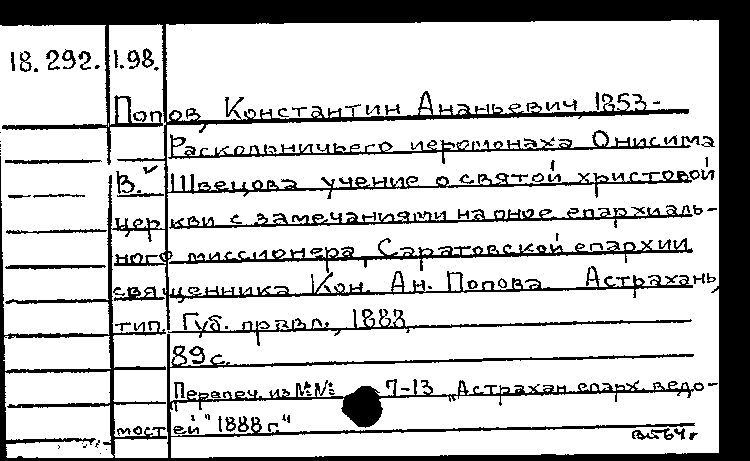 18.292. 1.98.
Попов, Константин Ананьевич, 1853-
Раскольничьего иеромонаха Онисима
В. Швецова учение о святой христовой
церкви с замечаниями на оное епархиаль-
ного миссионера, Саратовской епархии
священника Кон. Ан. Попова. Астрахань,
тип. Губ. правл., 1888.
89 с.
Перепеч. из №№ 7-13 "Астрахан. епарх. ведо-
мостей" 1888 г."